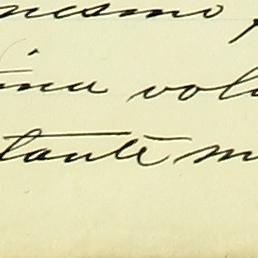 mesmo
ina vol
tante m